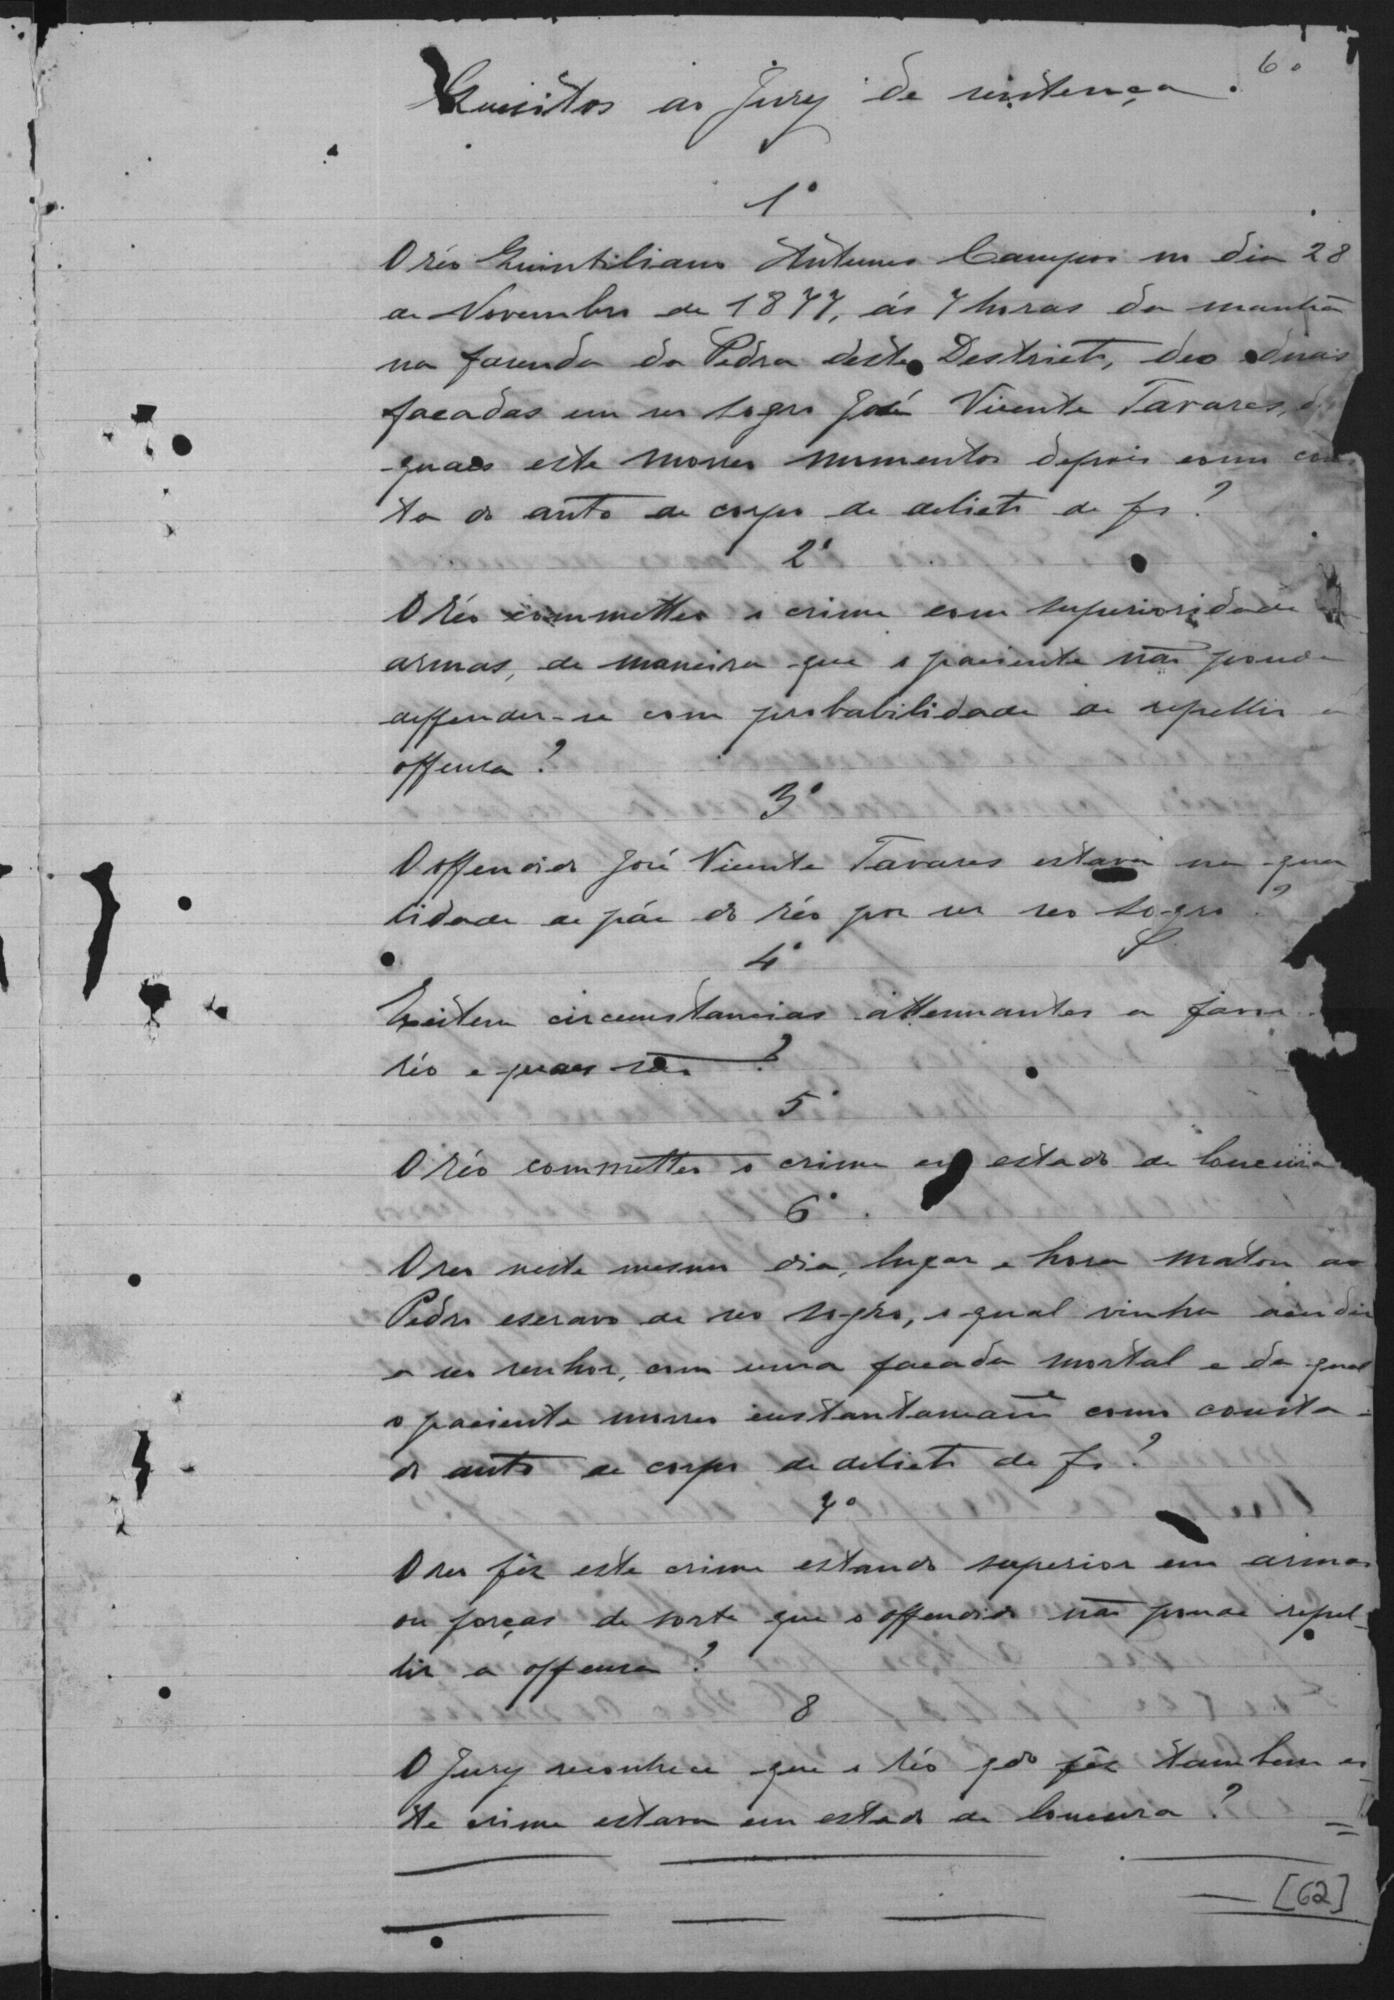 60
Quesitos ao Jury de sentença.
1º
O réo Quintiliano Antunes Campos no dia 28
de Novembro de 1877, ás 7 horas da manhã
na fazenda da Pedra deste Destricto, deo duas
facadas em seo sogro José Vicente Tavares, d
quaes este morreo momentos depois como cons
ta do auto de corpo de delicto de fs ?
2º
O Réo commetteo o crime com superioridade
armas, de maneira que o paciente não poude
deffender-se com probabilidade de repellir a
offensa ?
3º
O offendido José Vicente Tavares estava na qua
lidade de páe do réo por ser seo sogro ?
4º
Existem circumstancias attenuantes a favor
réo e quaes são ?
5º
O Réo commetteo o crime em estado de loucura
6º
O reo neste mesmo dia, lugar e hora matou ao
Pedro escravo de seo sogro, o qual vinha acudir
a seo senhor, com uma facada mortal e da qual
o paciente morreo instantaneamte como consta
do auto de corpo de delicto de fs ?
7º
O reo fêz este crime estando superior em armas
ou forças de sorte que o offendido não poude repel-
lir a offensa ?
8
O Jury reconhece que o réo qdo fêz tambem es
te crime estava em estado de loucura ?
[62]